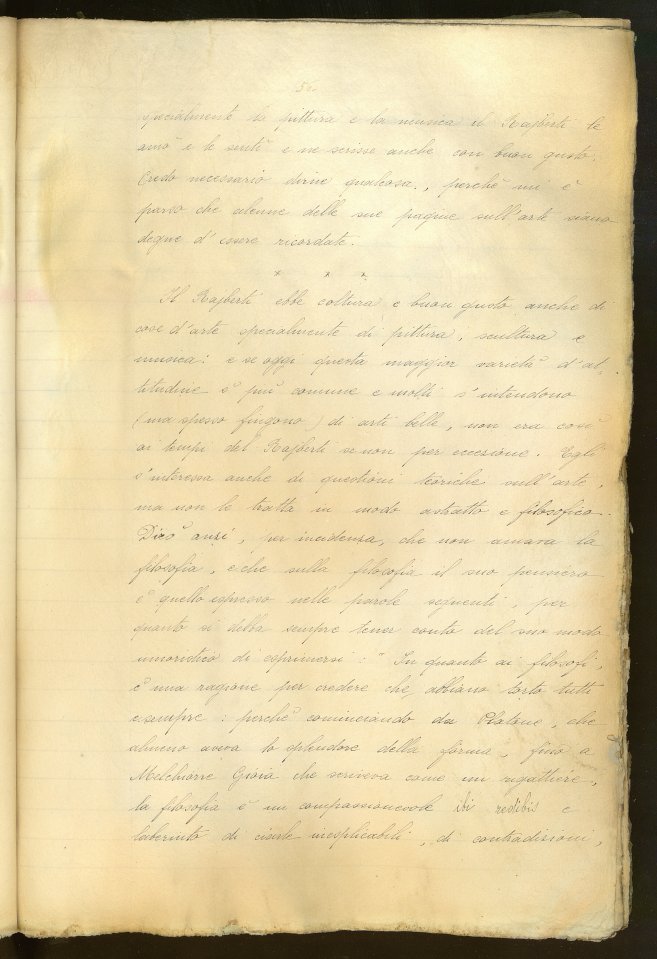 50.
specialmente la pittura e la musica il Rajberti le
amò e le sentì e ne scrisse anche con buon gusto.
Credo necessario dirne qualcosa, perchè mi è
parso che alcune delle sue pagine sull'arte siano
degne d'essere ricordate.
* * *
Il Rajberti ebbe coltura e buon gusto anche di
cose d'arte specialmente di pittura, scultura e
musica: e se oggi questa maggior varietà d'at-
titudine è più comune e molti s'intendono
(ma spesso fingono) di arti belle, non era così
ai tempi del Rajberti se non per eccesione. Egli
s'interessa anche di questioni teoriche sull'arte,
ma non le tratta in modo astratto e filosofico.
Dirò anzi, per incidenza, che non amava la
filosofia, e che sulla filosofia il suo pensiero
è quello espresso nelle parole seguenti, per
quanto si debba sempre tener conto del suo modo
umoristico di esprimersi: "In quanto ai filosofi,
c'è una ragione per credere che abbiano torto tutti
e sempre: perchè cominciando da Platone, che
almeno aveva lo splendore della forma, fino a
Melchiorre Gioia che scriveva come un rigattiere,
la filosofia è un compassionevole ibi redibis e
laberinto di ciarle inesplicabili, di contradizioni,